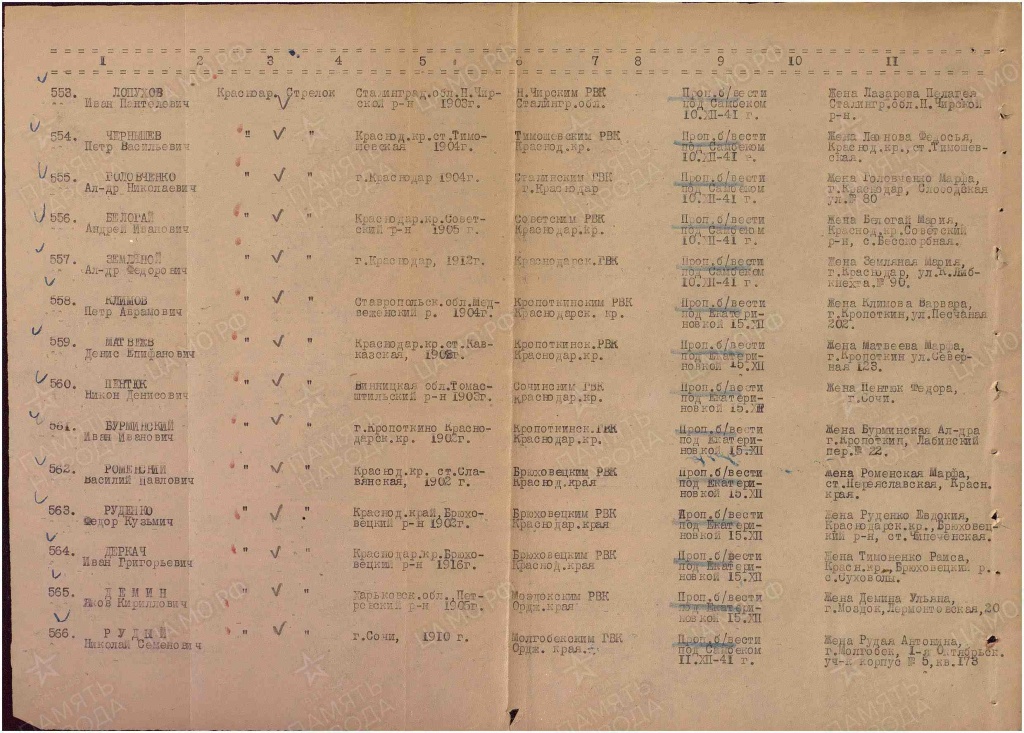 1 2 3 4 5 6 7 8 9 10 11
553. ЛОПУХОВ Красноар. Стрелок Сталинград.обл.Н.Чир- Н.Чирским РВК Проп.б/вести Жена Лазарева Пелагея
Иван Пантелевич ской р-н 1903г. Сталингр.обл. под Самбеком Сталингр.обл.Н.Чирской
10.XII-41 г. р-н.
554. ЧЕРНЫШЕВ " " Краснод.кр.ст.Тимо- Тимошевским РВК Проп.б/вести Жена Леонова Федосья,
Петр Васильевич шевская 1904г. Краснод.кр. под Самбеком Краснод.кр.,ст.Тимошев-
10.XII-41 г. ская.
555. ГОЛОВЧЕНКО " " г.Краснодар 1904г. Сталинским РВК Проп.б/вести Жена Головченко Марфа,
Ал-др Николаевич г.Краснодар под Самбеком г.Краснодар, Слободская
10.XII-41 г. ул.№ 80
556. БЕЛОГАЙ " " Краснодар.кр.Совет- Советским РВК Проп.б/вести Жена Белогай Мария,
Андрей Иванович ский р-н 1905 г. Краснодар.кр. под Самбеком Краснод.кр.Советский
10.XII-41 г. р-н, с.Бесскорбная.
557. ЗЕМЛЯНОЙ " " г.Краснодар, 1912г. Краснодарск.ГВК Проп.б/вести Жена Земляная Мария,
Ал-др Федорович под Самбеком г.Краснодар, ул.К.Либ-
10.XII-41 г. кнехта.№ 90.
558. КЛИМОВ " " Ставропольск.обл.Мед- Кропоткинским РВК Проп.б/вести Жена Климова Варвара,
Петр Аврамович веженский р. 1904г. Краснодарск. кр. под Екатери- г.Кропоткин,ул.Песчаная
новкой 15.XII 202.
559. МАТВЕЕВ " " Краснодар.кр.ст.Кав- Кропоткинск.РВК Проп.б/вести Жена Матвеева Марфа,
Денис Епифанович казская, 1902г. Краснодар.кр. под Екатери- г.Кропоткин ул.Север-
новкой 15.XII ная 123.
560. ПЕНТЮК " " Винницкая обл.Томас- Сочинским ГВК Проп.б/вести Жена Пентюк Федора,
Никон Денисович штильский р-н 1903г. Краснодар.кр. под Екатери- г.Сочи.
новкой 15.XII
561. БУРМИНСКИЙ " " г.Кропоткино Красно- Кропоткинск.ГВК Проп.б/вести Жена Бурминская Ал-дра
Иван Иванович дарск.кр. 1902г. Краснодар.кр. под Екатери- г.Кропоткин, Лабинский
новкой 15.XII пер.№ 22.
562. РОМЕНСКИЙ " " Краснод.кр. ст.Сла- Брюховецким РВК Проп.б/вести Жена Роменская Марфа,
Василий Павлович вянская, 1902 г. Краснод.края под Екатери- ст.Переяславская, Красн.
новкой 15.XII края.
563. РУДЕНКО " " Краснод.край,Брюхо- Брюховецким РВК Проп.б/вести Жена Руденко Евдокия,
Федор Кузьмич вецкий р-н 1902г. Краснодар.края под Екатери- Краснодарск.кр.,Брюховец-
новкой 15.XII кий р-н, ст.Чипеченская.
564. ДЕРКАЧ " " Краснодар.кр.Брюхо- Брюховецким РВК Проп.б/вести Жена Тимоненко Раиса,
Иван Григорьевич вецкий р-н 1916г. Краснод.края под Екатери- Красн.кр., Брюховецкий р.
новкой 15.XII с.Суховолы.
565. ДЕМИН " " Харьковск.обл.,Пет- Моздокским РВК Проп.б/вести Жена Демина Ульяна,
Яков Кириллович ровский р-н 1905г. Ордж.края под Екатери- г.Моздок,Лермонтовская,20
новкой 15.XII
566. РУДЫЙ " " г.Сочи, 1910 г. Молгобекским ГВК Проп.б/вести Жена Рудая
Николай Семенович Ордж. края. под Самбеком г.Молгобек, 1-я Октябрьск.
11.XII-41 г. уч-к корпус № 5,кв.173
ПАМЯТЬ НАРОДА
ЦАМО.РФ